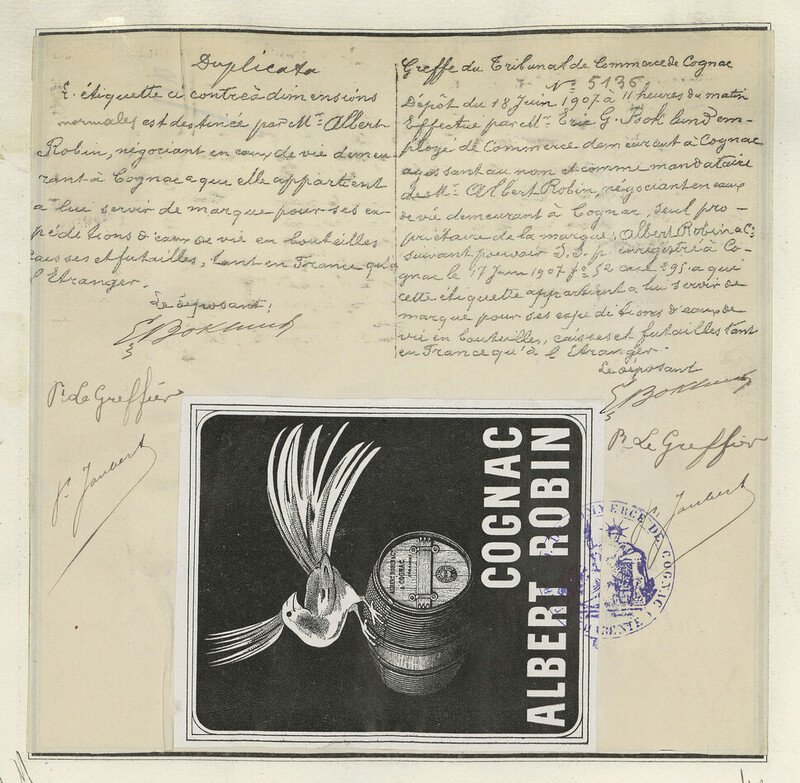 Duplicata
L'étiquette ci contre à dimensions
normales est destinée par Mr. Albert
Robin, négociant en eaux de vie demeu
rant à Cognac a qui elle appartient
a lui servir de marque pour ses ex-
péditions d'eaux de vie en bouteilles
caisses et futailles, tant en France qu'à
l'Etranger.
Le déposant:
Pr. Le Greffier
Pr. Joubert
Greffe du Tribunal de Commerce de Cognac
No 5136
Dépôt du 18 Juin 1907 à 11 heures du matin
Effectué par Mr. Eric G. Boklund em-
ployé de Commerce demeurant à Cognac
agissant au nom et comme mandataire
de Mr. Albert Robin, négociant en eaux
de vie demeurant à Cognac, seul pro-
priétaire de la marque, Albert Robin & Co
suivant pouvoir S.S.p. enregistré à Co-
gnac le 17 Juin 1907 fo. 52 case no. 95 a qui
cette étiquette appartient a lui servir de
marque pour ses expéditions d'eaux de
vie en bouteilles, caisses et futailles tant
en France qu'à l'Etranger.
Le déposant
E Boklund
Pr. Le Greffier
Joubert
COGNAC
ALBERT ROBIN
COGNAC
COMMERCE DE COGNAC
CHARENTE